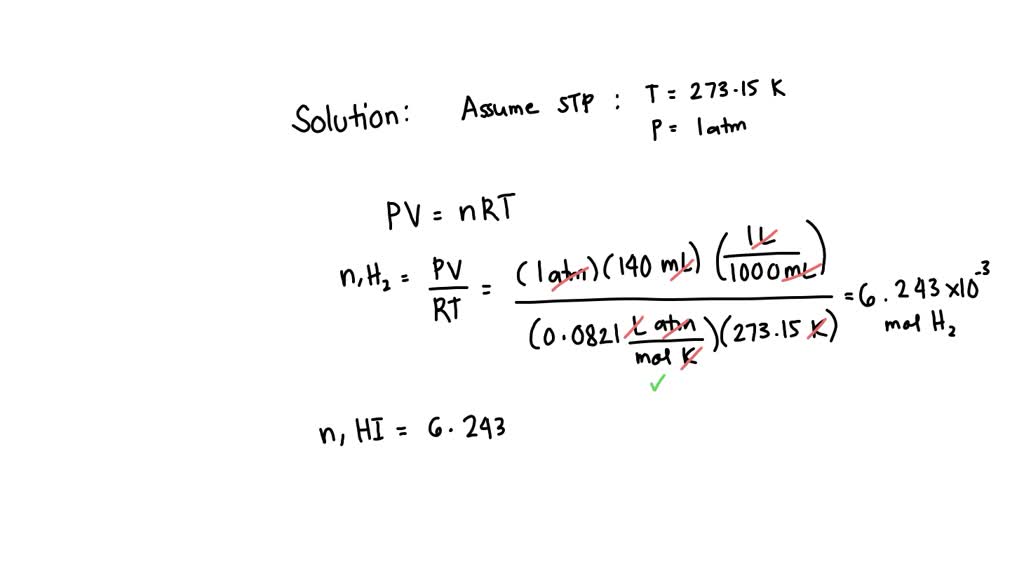 Solution: Assume STP : T = 273.15 K
P = 1 atm
PV = nRT
n, H₂ = PV/RT = (1 atm)(140 mL)(1 L/1000 mL)/(0.0821 L atm/mol K)(273.15 K) = 6.243 x10⁻³ mol H₂
✓
n, HI = 6.243